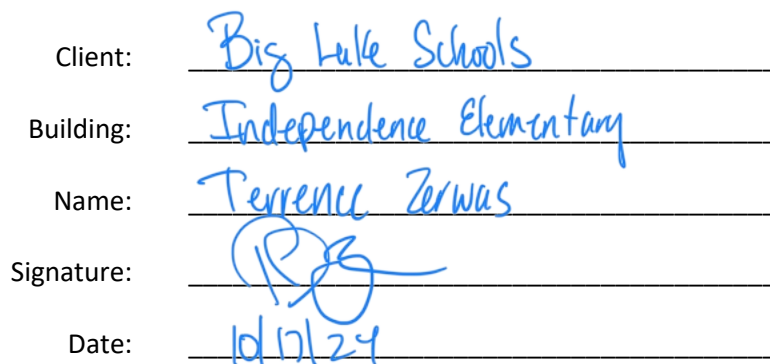 Client: Big Lake Schools
Building: Independence Elementary
Name: Terrence Zerwas
Signature:
Date: 10/17/24